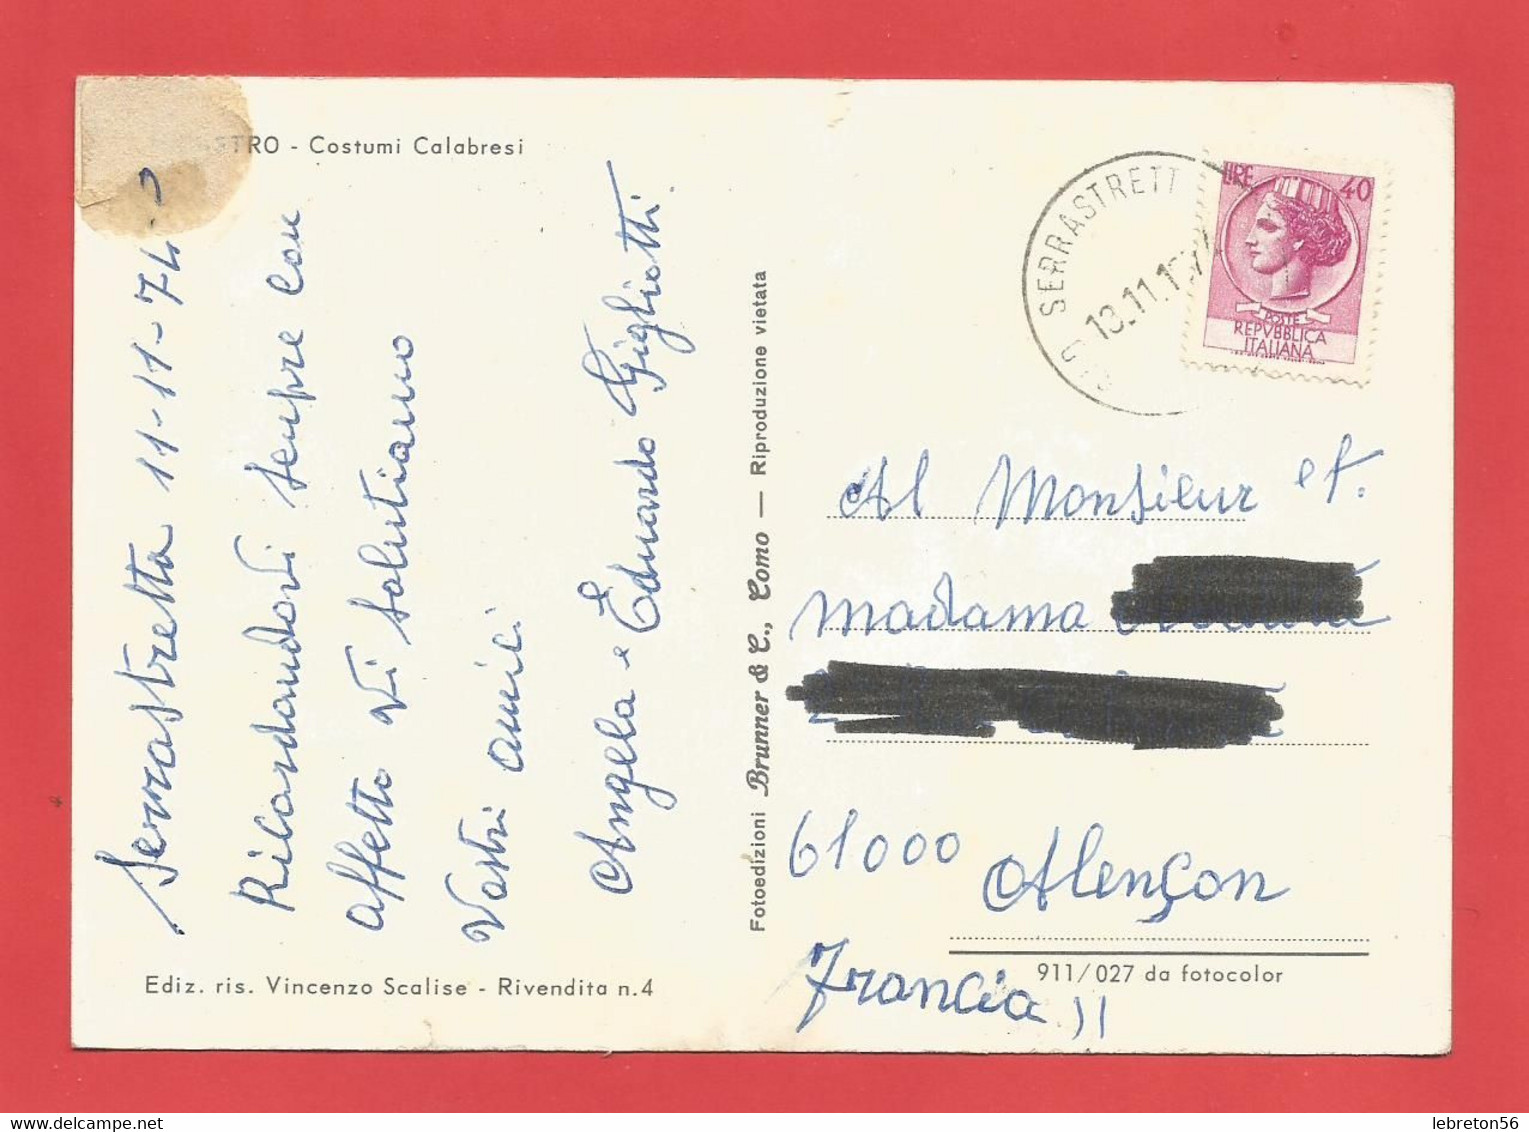 STRO - Costumi Calabresi
Serrastretta 11-11-74
Ricordandovi sempre con
affetto vi salutiamo
Vostri amici
Angela e Eduardo Gigliotti.
Ediz. ris. Vincenzo Scalise - Rivendita n.4
Fotoedizioni Brunner & C., Como — Riproduzione vietata
SERRASTRETT
13.11.1
LIRE 40
POSTE
REPVBBLICA
ITALIANA
Al Monsieur et.
Madama
61000 Alençon
Francia
911/027 da fotocolor
lebreton56